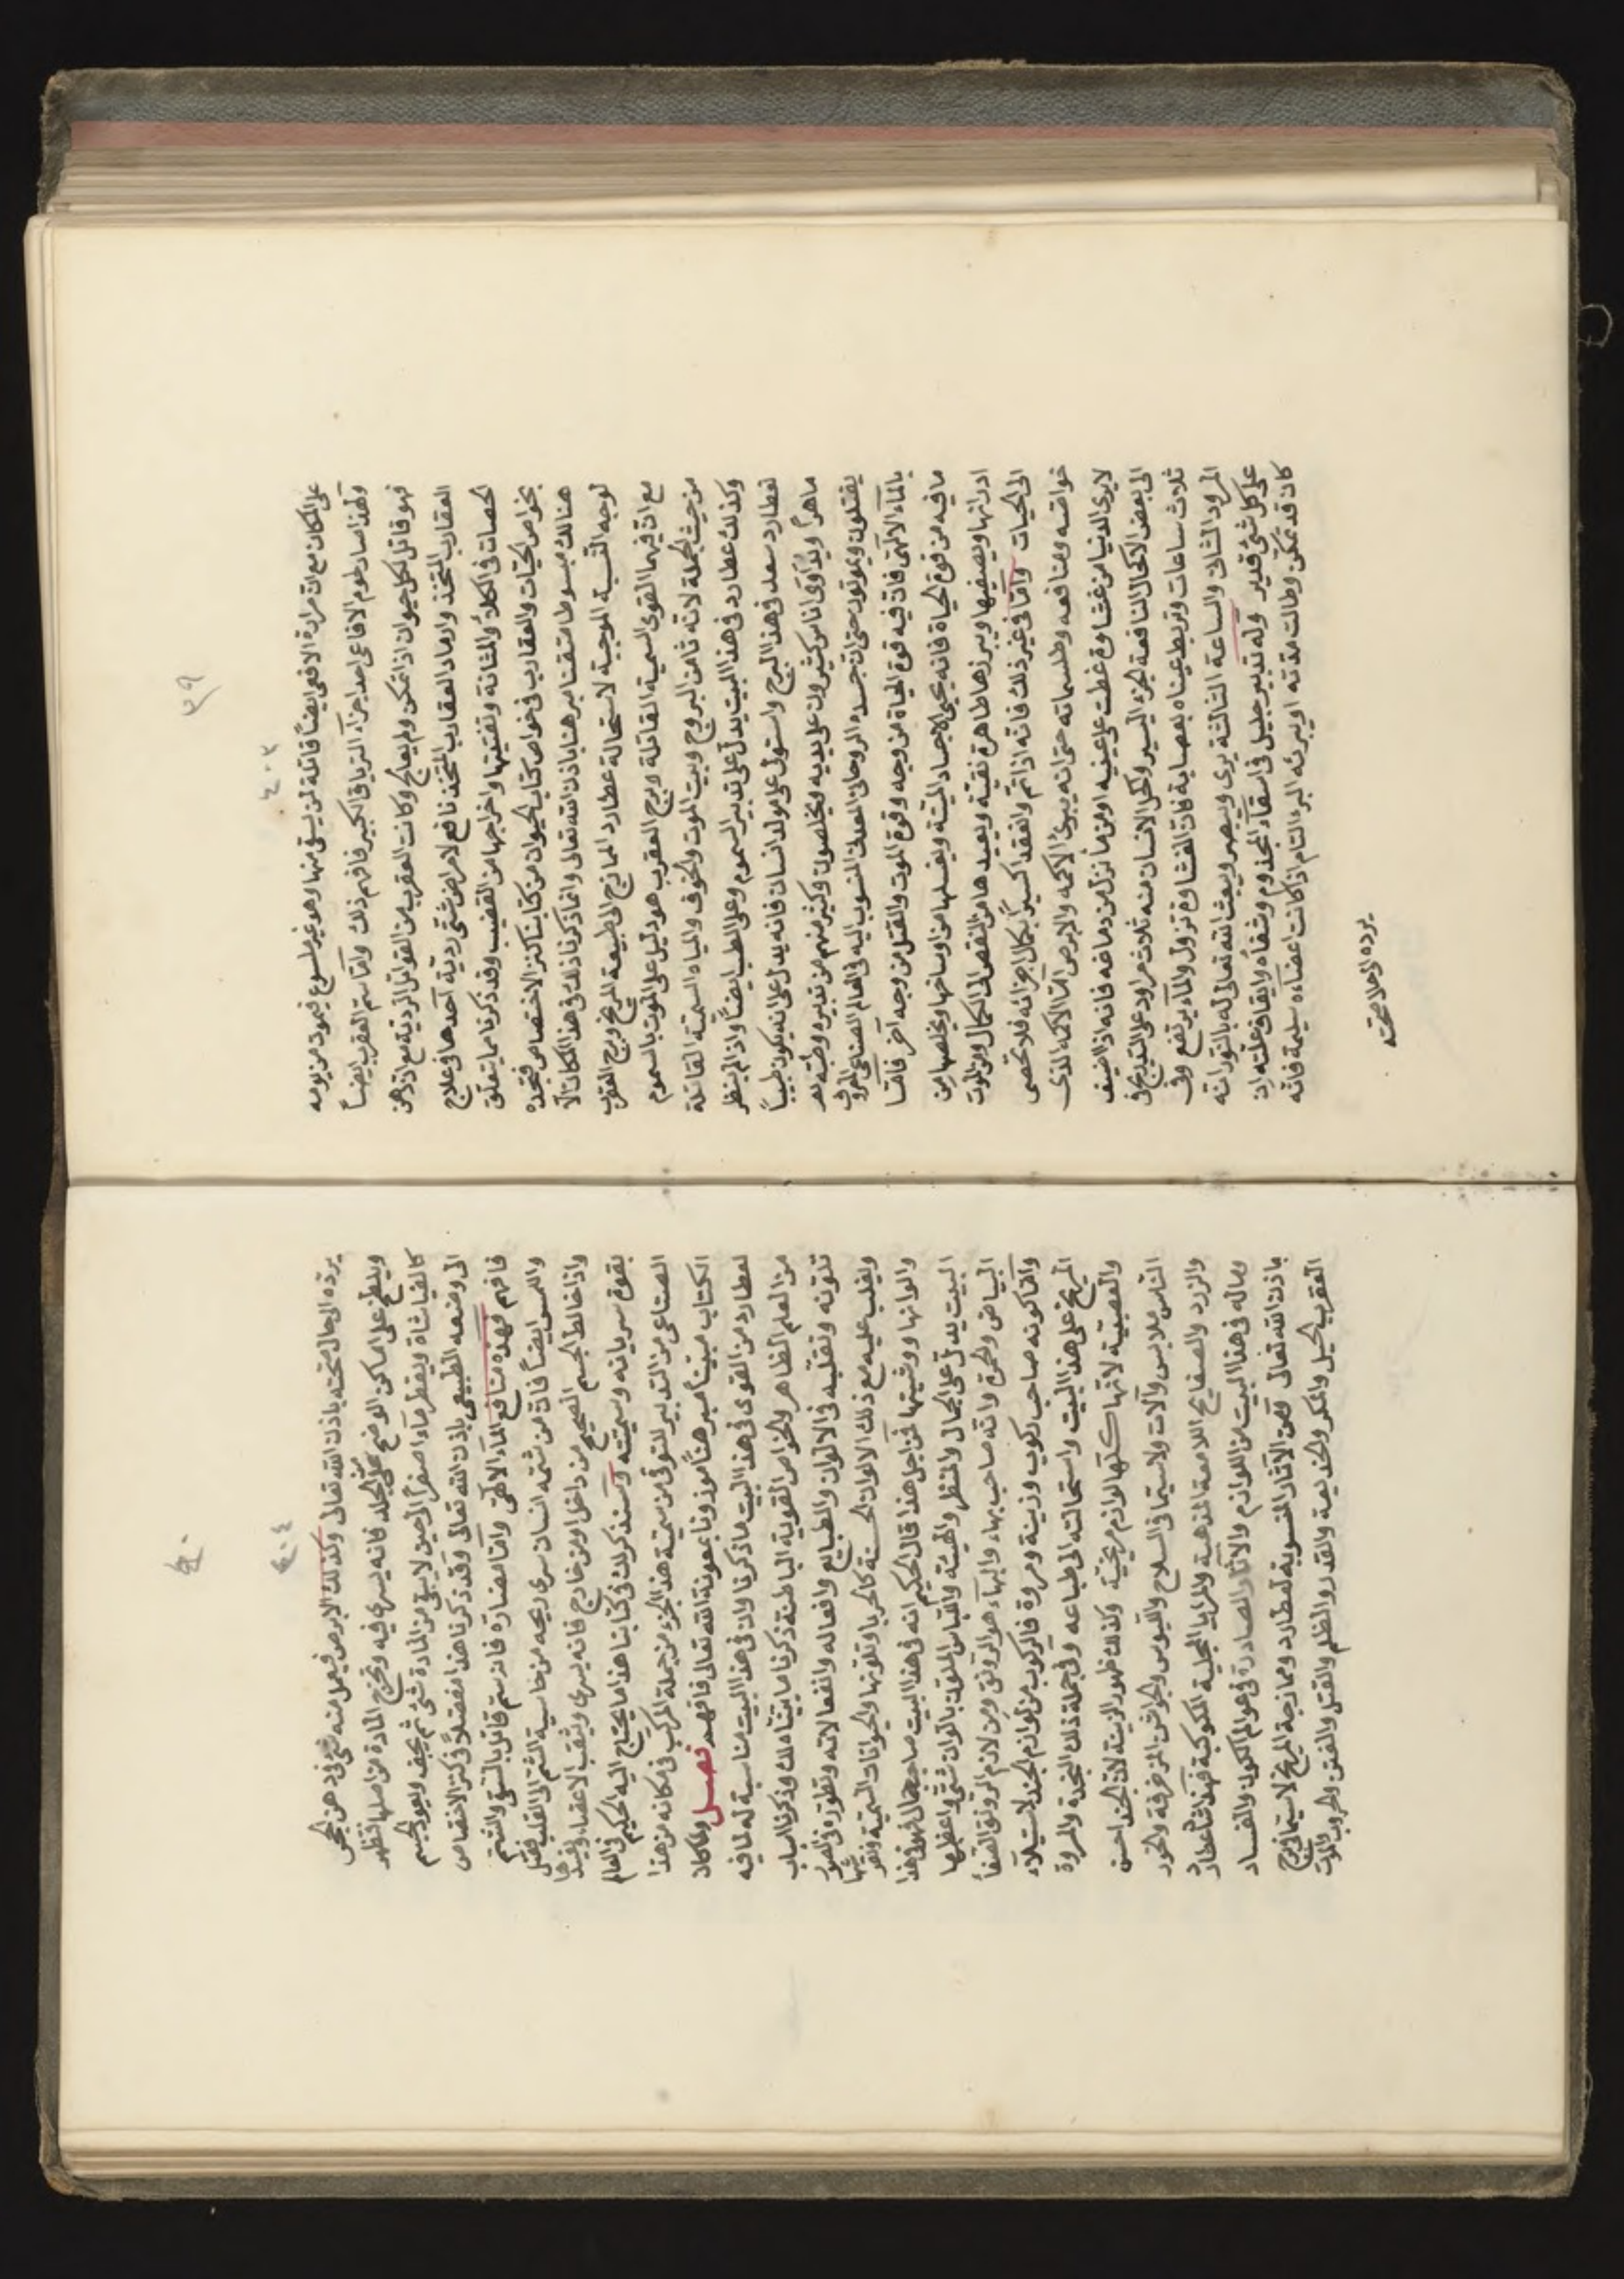 ٣٩
٤٠٣
على المكان مع ان مرارة الافعى ايضاً قاتلة لمن يسقى منها وهو غير ملسوع فيموت من يومه
ولهذا صار لحوم الافاعى احد اجزآء الترياق الكبير فافهم ذلك وامّا سم العقرب ايضاً
فهو قاتل لكل حيوان اذا تمكن ولم يعالج وكانت العقرب من القواتل الردية مع ان دهن
العقارب المتخذ وارماد العقارب المتخذ نافع لامراض شتى ردية احدها فى علاج
الحصات فى الكلا والمثانة وتفتيتها واخراجها من القضيب وقد ذكرنا مما يتعلق
بخواص الحيّات والعقارب فى خواص كتاب الحيوان من كتابنا كنز الاختصاص فتجده
هنالك مبسوطا متقنا مبرهنا باذن الله تعالى وانما ذكرنا ذلك فى هذا المكان الّا
لوجه النسبة الموجبة لاستحالة عطارد الممازج الى طبيعة المريخ وبرج العقرب
مع ان فيهما القوى السمية القاتلة وبرج العقرب هو دليل على الموت بالسموم
من حيث الجملة لانه ثامن البروج وبيت الموت والخوف والمياه السمية القاتلة
وكذلك عطارد فى هذا البيت يدل على تدبير السموم وعلى الطب ايضاً واذا لم ينظر
لعطارد سعد فى هذا البرج واستولى على مولد انسان فانه يدل على انه يكون طبيباً
ماهراً ويُداوى اناس كثيرون على يديه ويخلصون وكثير منهم من تدبيره وطبّه قد
يقتلون ويموتون حتى ان جسده الروحانى المعدنى المنسوب اليه فى العالم الصناعى المعروف
بالمآء الالهى فان فيه قوة الحياة من وجه وقوة الموت والقتل من وجه آخر فامّا
مافيه من قوة الحياة فانه يحيى الاجساد الميتة ويغسلها من اوساخها ويخلصها من
ادرانها ويصفيها ويبرزها طاهرة نقية ويعيدها من النقص الى الكمال ومن الموت
الى الحيات وامّا فى غير ذلك فانه اذا تمّ وانعقد اكسيراً بكمال اجزائه فلا تحصى
خواصه ومنافعه وطلسماته حتى انه يبرئ الاكمه والابرص امّا الاكمه الذى
لايرى الدنيا من غشاوة غطت على عينيه اومن مآ نزل من دماغه فانه اذا اضيف
الى بعض الاكحال النافعة الجزء اليسير وكحل الانسان منه ثلاث مراود على التدريج فى
ثلاث ساعات وتربط عيناه بعصابة فان الغشاوة تزول والمآء يرتفع وفى
المرود الثانى والساعة الثالثة يرى ويبصر ويبعث الله تعالى له بالنور انه
على كل شئ قدير وله تدبير جليل فى اسقآء المجذوم وشفآه وايقاف علته ان
كان قد تمكن وطالت مدته اويبرئه البرء التام اذا كانت اعضآءه سليمة فانه
يرده الى صحته
٤٠
٤٠٤
يرده الى حال صحته باذن الله تعالى وكذلك الابرص فيعمل منه شئ فى دهن
ويلطخ على اماكن الوضح من الجلد فانه يسرى فيه وتخرج المادة من اصلها فتظهر
كالفياشاة ويقطر مآء اصفراً الى حين لايبقى من المادة شئ ثم يجف ويعود الجسم
الى وضعه الطبيعى باذن الله تعالى وقد ذكرنا هذا مفصلاً فى كنز الاختصاص
فافهم فهذه منافع المآء الالهى وامّا مضاره فانه سم قاتل بالسقى والشم
واللمس ايضاً فان من شمه انسان سرى ريحه من خاسية الشم الى القلب فقتل
واذا خالط الجسم الصحيح من داخل اومن خارج فانه يسرى ويثقب الاعضاء ويفسدها
بقوة سريانه وسميته وسنذكر لك فى كتابنا هذا ما يحتاج اليه الحكيم فى العالم
الصناعى من التدبير للتوقى من سمية هذا الجزء من جملة المركب فى مكانه من هذا
الكتاب مبيناً مبرهناً موزونا بمعونة الله تعالى فافهم فصل ولما كان
لعطارد من القوى فى هذا البيت ماذكرنا وان فى هذا البيت مناسبة له لما فيه
من العلم الظاهر والخواص القوية الباطنة ذكرنا ما بيناه لك وذكرنا اسباب
تلونه وتقلبه فى الالوان والطبايع وافعاله وانفعالاته وتطوره فى الصور
ويغلب عليه مع ذلك الالوان الحسنة كالحربا وتلونها والحيوانات السمية ونقوشها
والوانها ووشيتها فمن اجل هذا قال الحكيم انه فى هذا البيت صاحب جمال لانه فى هذا
البيت يدل على الجمال والمنظر والهيئة والقباس الملونة بالوان شتى واعظمها
البياض والحمرة وانه صاحب بهاء والبهآء هو الرونق ومن لازم الرونق الصفآ
وامّا كونه صاحب ركوب وزينة ومروة فالركوب من لوازم الجند لاستيلآء
المريخ على هذا البيت واستحالته الى طباعه وفى جملة ذلك النجدة والمروة
والعصبية لانها كلها لوازم مريخية وكذلك ظهور الزينة لان الجند احسن
الناس ملابس وآلات ولاسيما فى السلاح والقبوس والجواشن المزخرفة والخود
والزرد والصفايح اللامعة المذهبية والمرايا المجلية الكوكبية فهذا شأن عطارد
وماله فى هذا البيت من اللوازم والآثار الصادرة فى عوالم الكون والفساد
باذن الله تعالى فمن الآثار المنسوبة لعطارد وممازجة المريخ لاسيما فى برج
العقرب الحيل والمكر والخديعة والغدر والظلم والقتل والفتن والحروب والموت